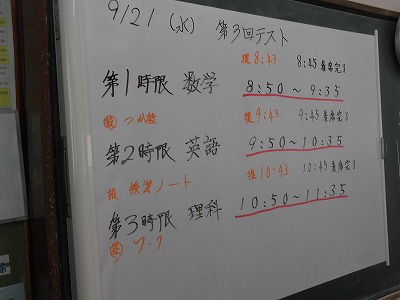 9/21 (水) 第3回テスト
予鈴 8:43 8:45 着席完了
第1時限 数学 8:50～9:35
9:43 9:45 着席完了
第2時限 英語 9:50～10:35
提 授業ノート
10:43 10:45 着席完了
第3時限 理科 10:50～11:35